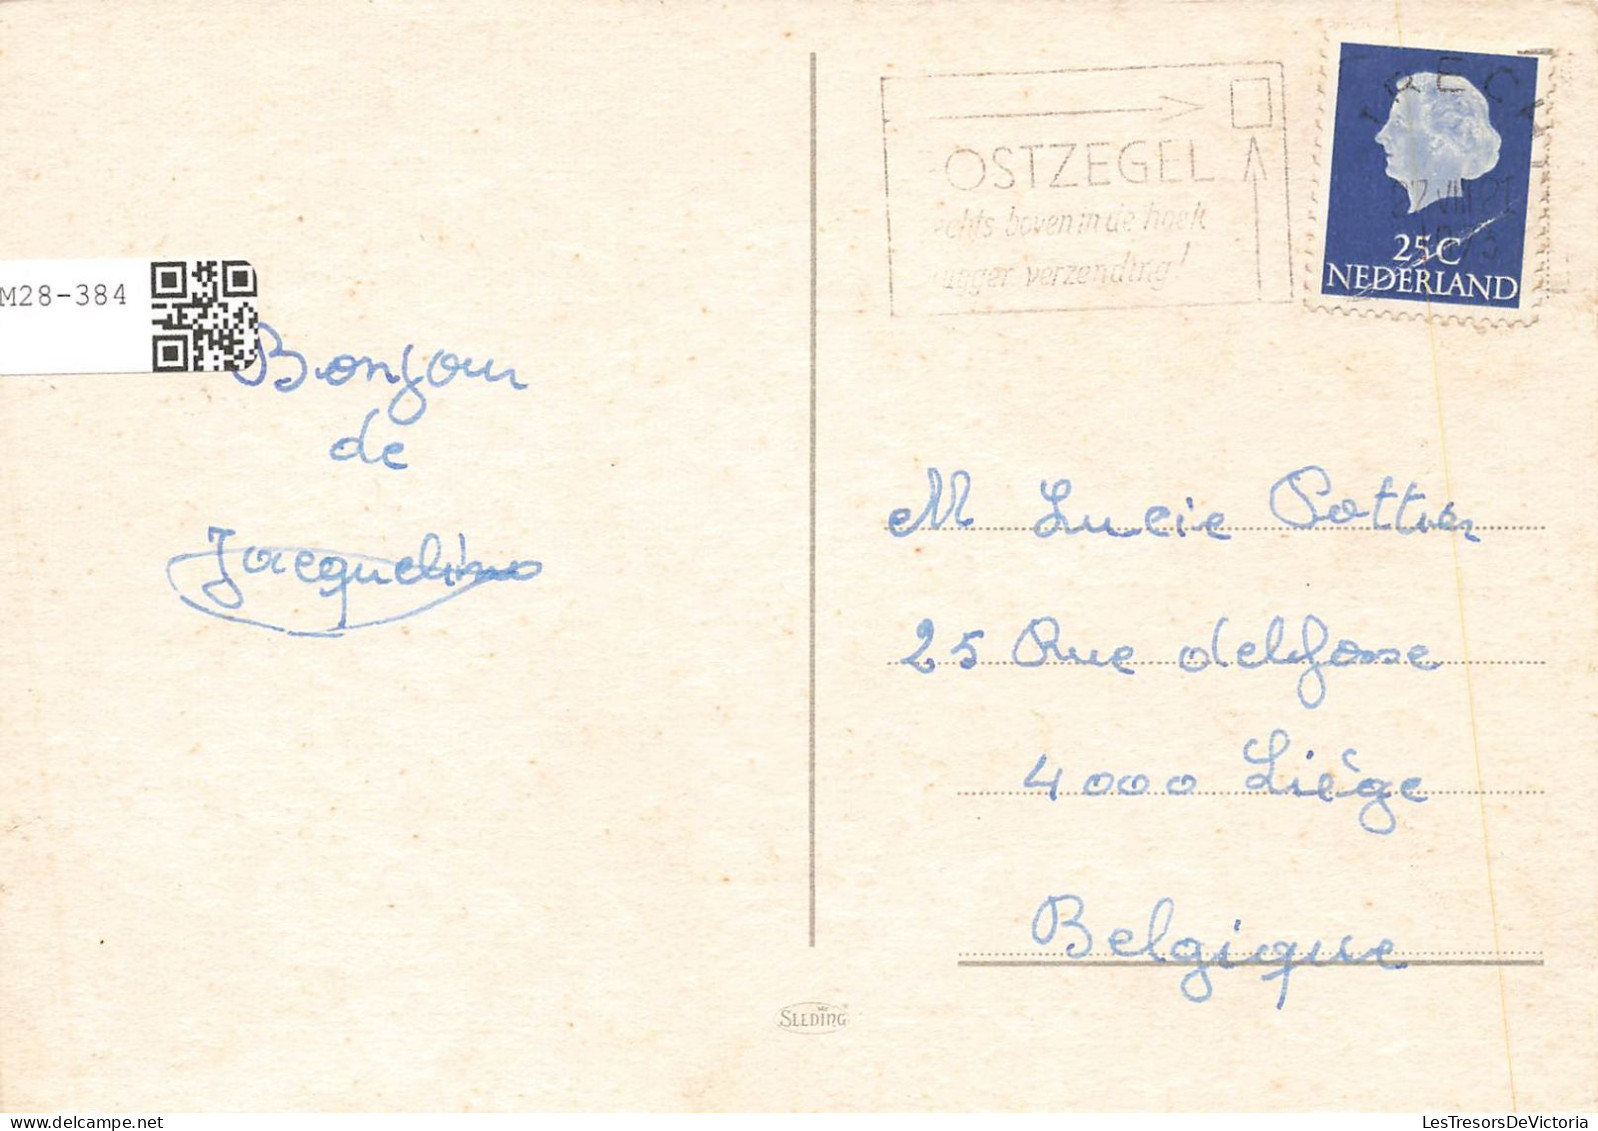 M28-384
Bonjour
de
Jacqueline
OSTZEGEL
chts boven in de hoek
verzending!
TRECH
25C
NEDERLAND
M Lucie Pottier
25 Rue delfosse
4000 Liège
Belgique
SLEDING
LesTresorsDeVictoria